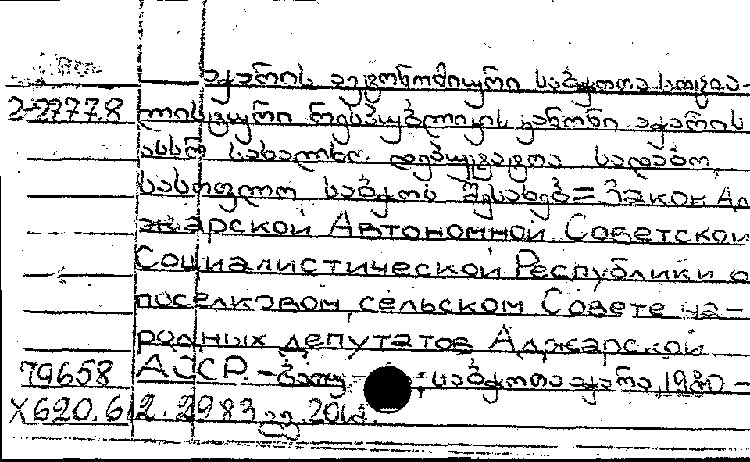 აჭარის ავტონომიური საბჭოთა სოცია-
2-27778 ლისტური რესპუბლიკის კანონი აჭარის
ასსრ სახალხო დეპუტატთა სადაბო,
სასოფლო საბჭოს შესახებ = Закон Ад
жарской Автономной Советской
Социалистической Республики о
поселковом, сельском Совете на-
родных депутатов Аджарской
79658 АССР. - საბჭოთა აჭარა, 1980 -
X620.612.2983 20